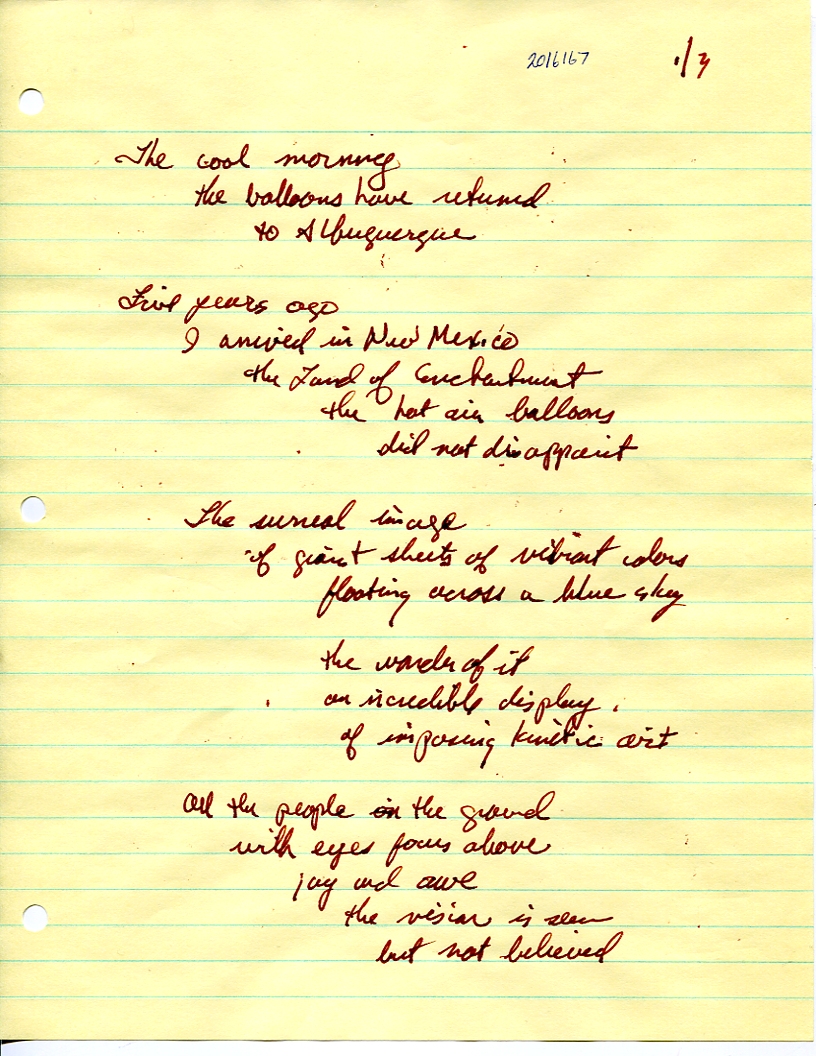 2016167
1/3
The cool morning
the balloons have returned
to Albuquerque
Five years ago
I arrived in New Mexico
the Land of Enchantment
the hot air balloons
did not disappoint
The surreal image
of giant sheets of vibrant colors
floating across a blue sky
the wonder of it
an incredible display
of imposing kinetic art
all the people on the ground
with eyes focus above
joy and awe
the vision is seen
but not believed